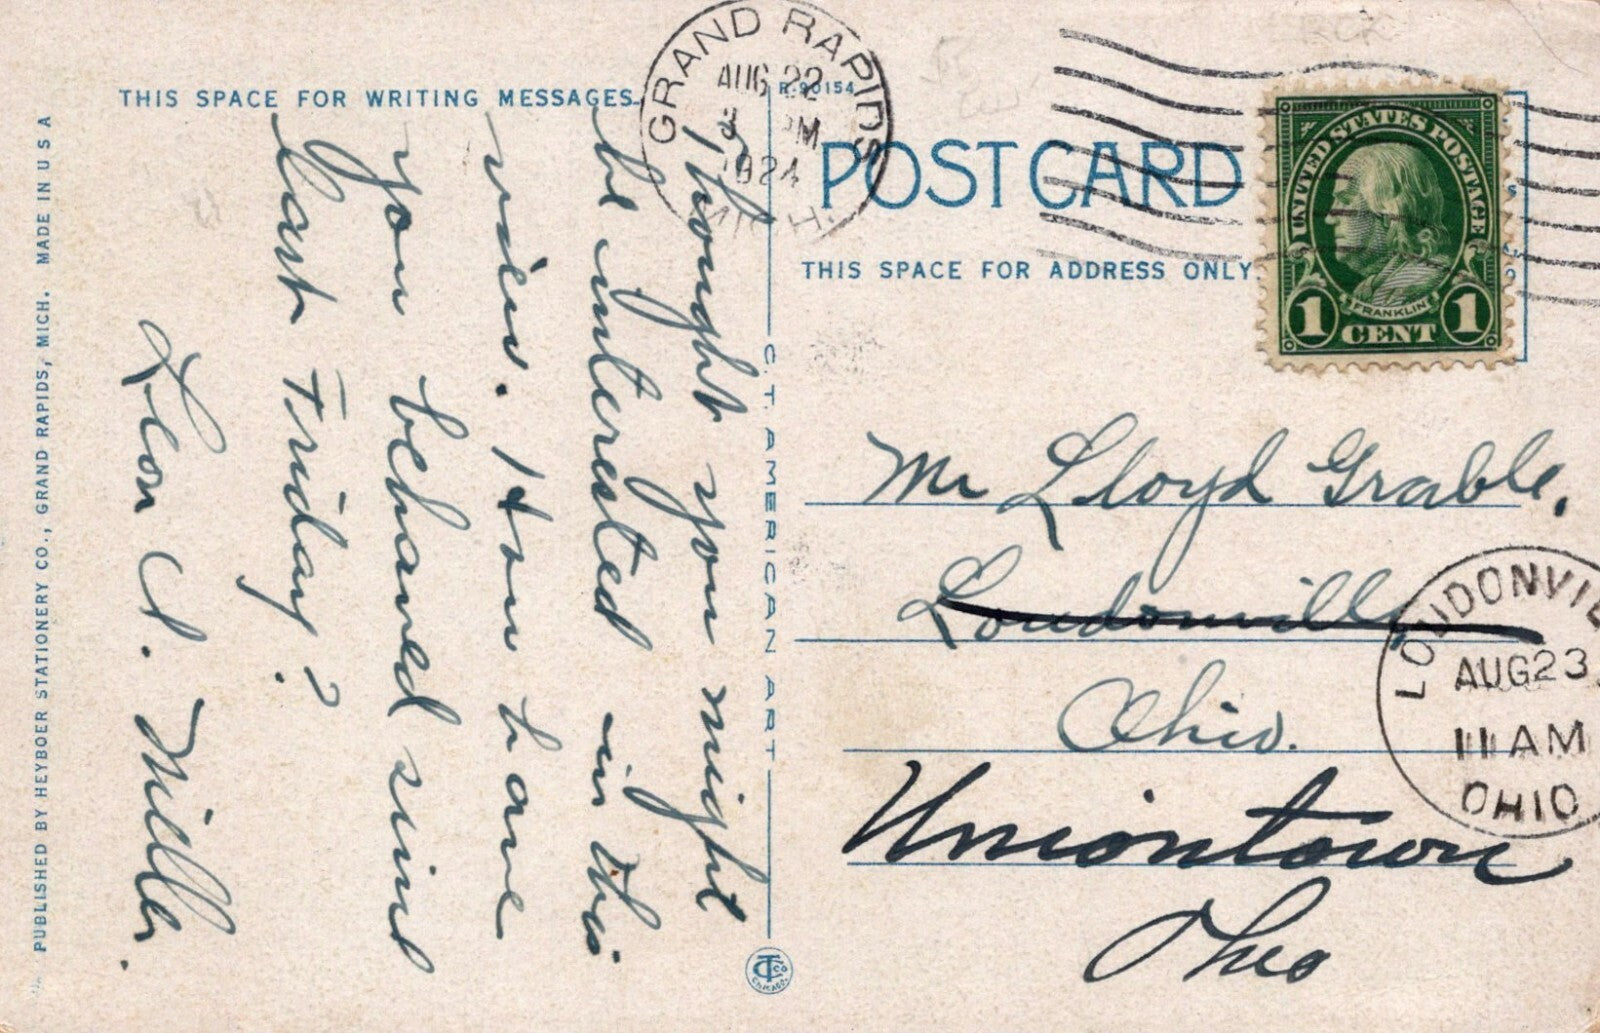 THIS SPACE FOR WRITING MESSAGES
Thought you might
be interested in this
view. How have
you behaved since
last Friday?
Leon A. Miller.
PUBLISHED BY HEYBOER STATIONERY CO., GRAND RAPIDS, MICH. MADE IN U S A
GRAND RAPIDS
AUG 22
PM
1924
MICH.
R-90154
POST CARD
THIS SPACE FOR ADDRESS ONLY
C.T. AMERICAN ART
UNITED STATES POSTAGE
FRANKLIN
1 CENT 1
Mr Lloyd Grable,
Loudonville
Ohio.
Uniontown
Ohio
LOUDONVIL
AUG 23
11 AM
OHIO
CHICAGO